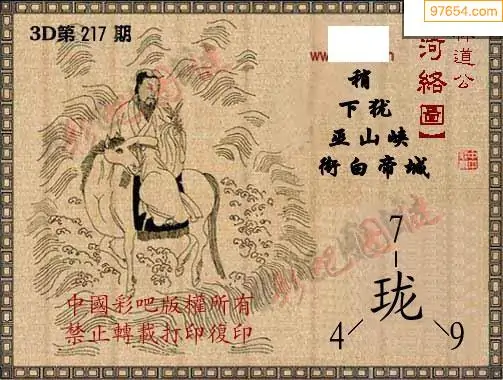 97654.com
3D第 217 期
www.
道公
河络圖】
稍
下犹
巫山峡
衔白帝城
7
珑
4
9
中國彩吧版權所有
禁止轉載打印復印